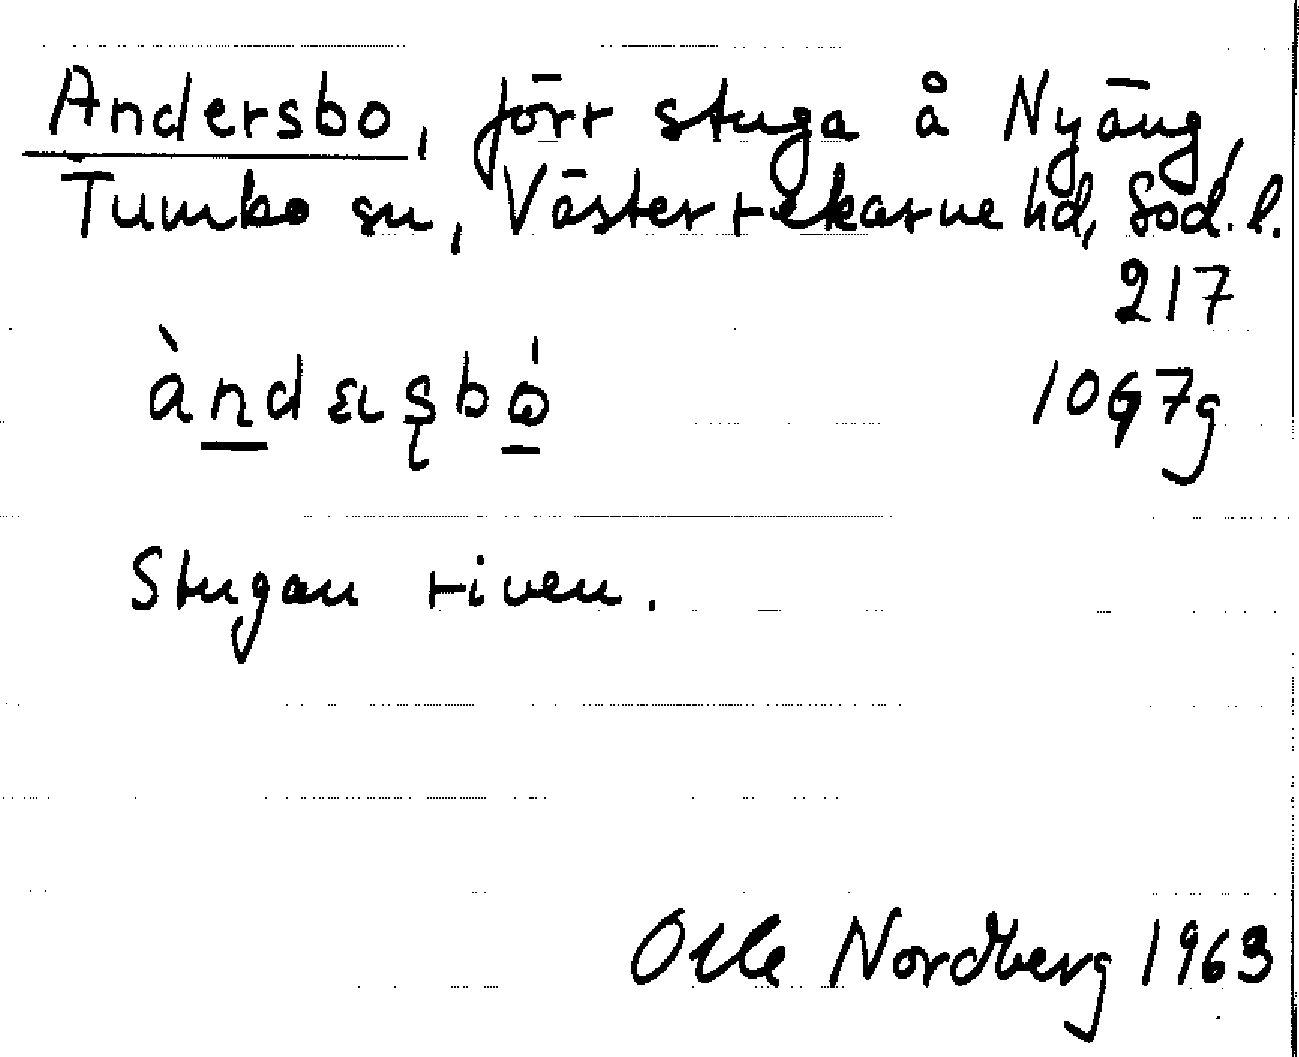 Andersbo, förr stuga å Nyäng,
Tumbo sn, Västerrekarne hd, Söd. l.
217
àndɛɹʂbó 1067g
Stugan riven.
Olle Nordberg 1963